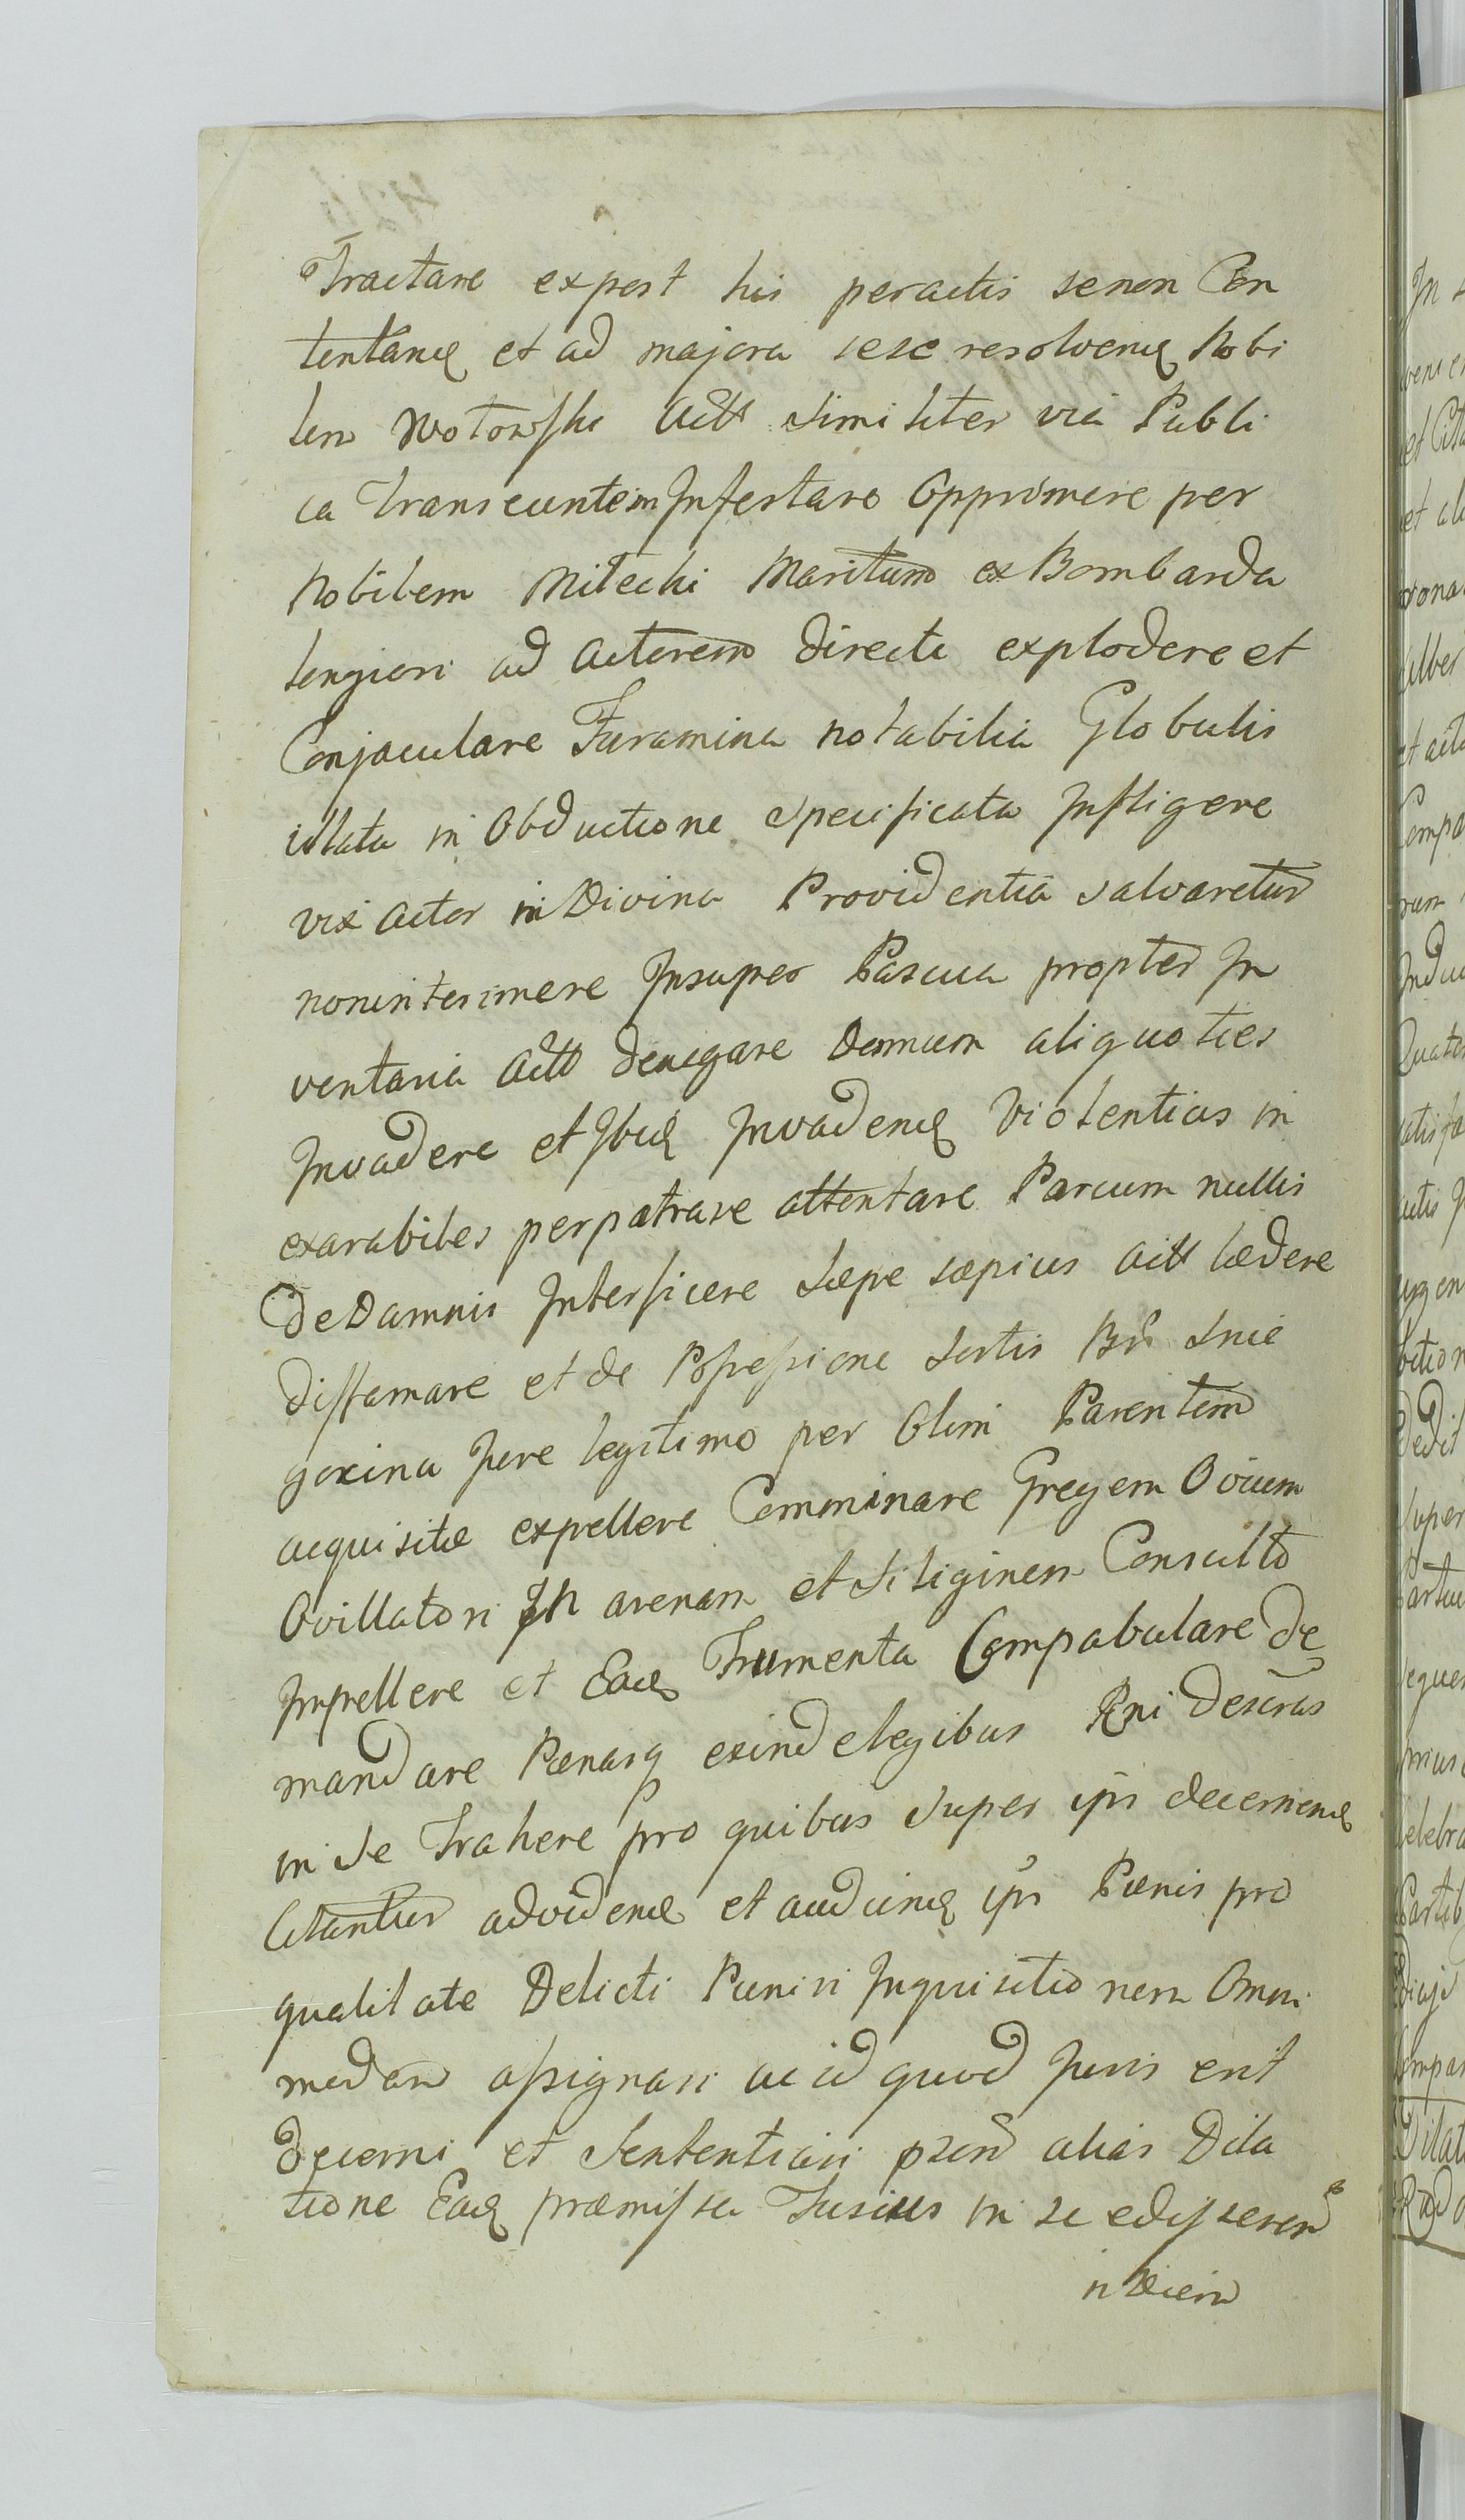 Tractare expost his peractis se non Con
tentane et ad majora sese resolvene Nobi
lem Wotowski Actt Similiter via Publi
ca Transeuntem Infestare Opprimere per
Nobilem Milecki Maritum ex Bombarda
longiori ad Actorem directe explodere et
Conjaculare Furamina notabilia Globulis
illata in Obductione Specificata Infligere
vix Actor ni Divina Providentia salvaretur
non interimere Insuper Pascua propter In
ventaria Actt denegare Domum aliquoties
Invadere et Ibid Invadene Violentias in
exarabiles perpatrare attentare Parcum nullis
de Damnis Interficere Sæpe sæpius Actt lædere
diffamare et de Possessione Sortis Bn Snie
gocina Jure legitimo per Olim Parentem
acquisitæ expellere Comminare Gregem Ovium
Ovillatori In avenam et Siliginem Consulto
Impellere et Ead Frumenta Compabulare de
mandare Pœnasq exinde legibus Rni descras
in Se Trahere pro quibus Super ipis decernend
Citantur ad vidend et audiend ipi Pœnis pro
qualitate Delicti Puniri Inquisitionem Omni
modam assignari ac id quod Juris erit
decerni et Sententiari prsen alias Dila
tione Ead præmissa Fusius in se edisseren
in diem
In
et Cita
et al
Compa